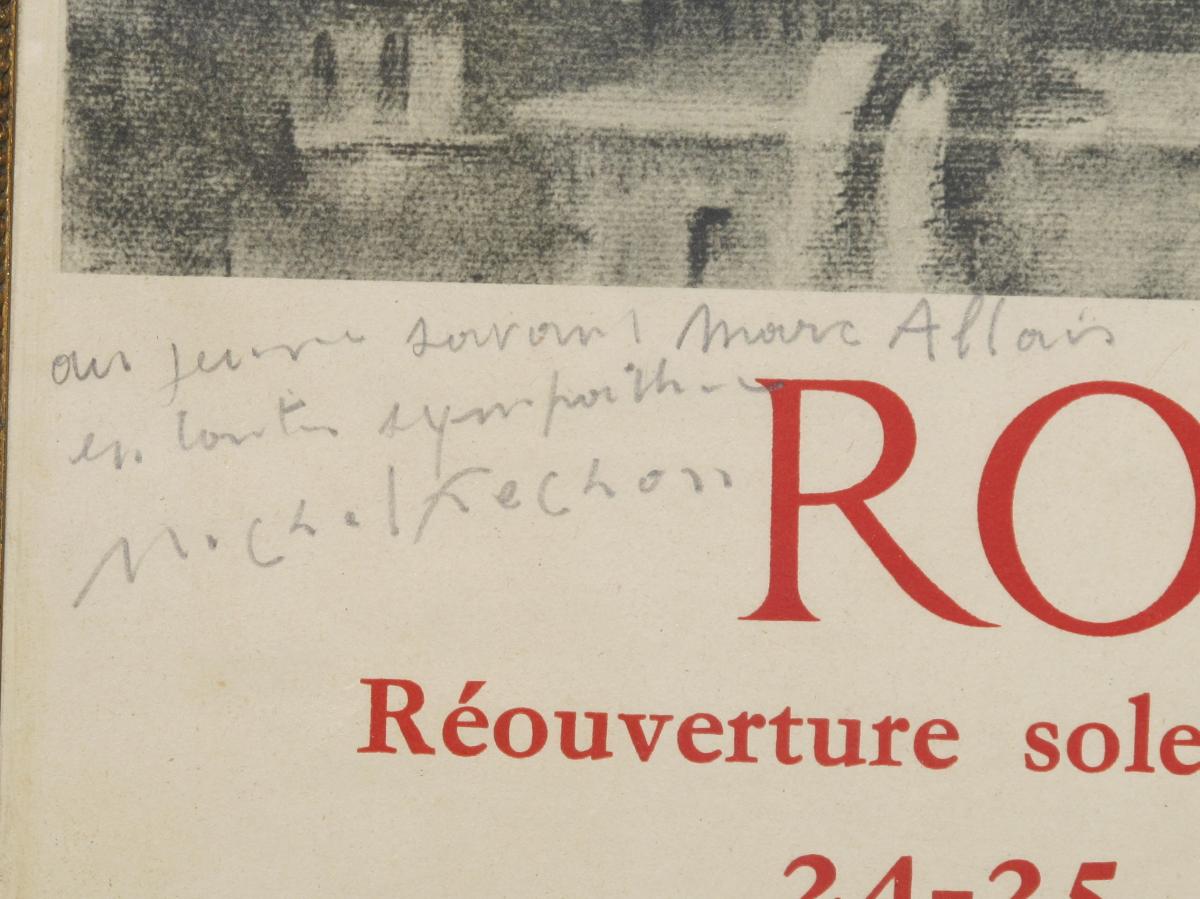 au jeune savant Marc Allais
en toute sympathie
Michel
RO
Réouverture sole
24-25